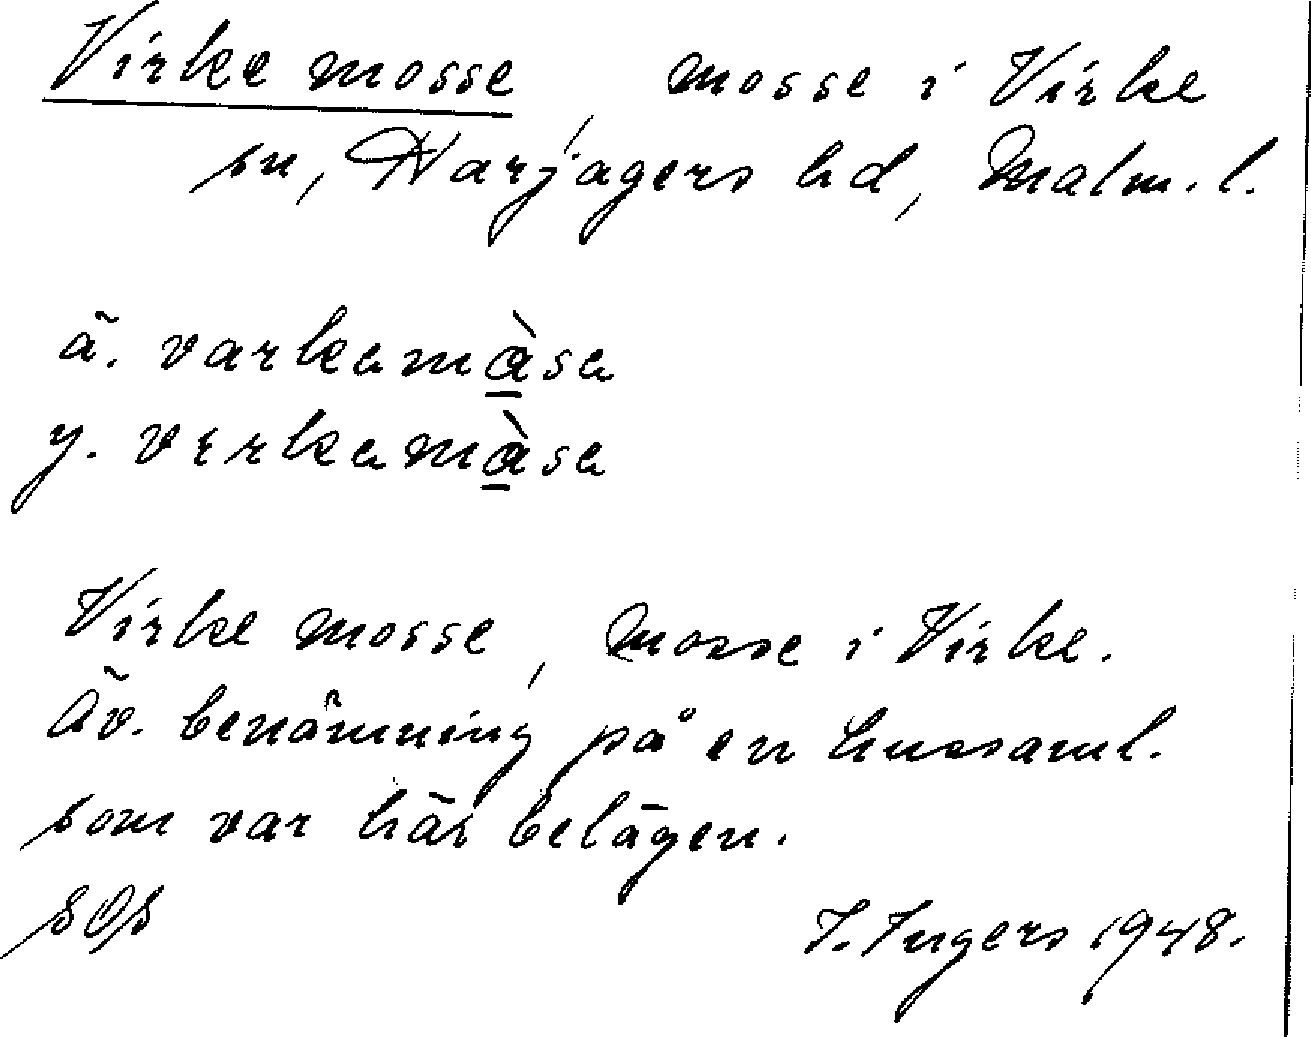 Virke mosse, mosse i Virke
sn, Harjagers hd, Malm. l.
ä. varkamàsa
y. virkamàsa
Virke mosse, mosse i Virke.
Äv. benämning på en hussaml.
som var här belägen.
SOS
I. Ingers 1948.